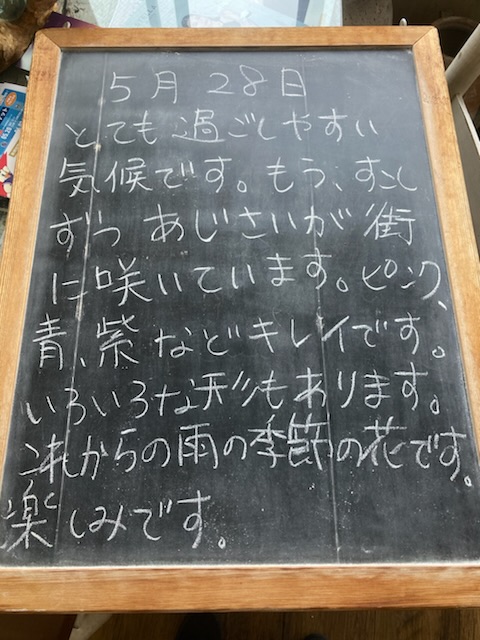 5月28日
とても過ごしやすい
気候です。もう、すこし
ずつ あじさいが街
に咲いています。ピンク、
青、紫などキレイです。
いろいろな形もあります。
これからの雨の季節の花です。
楽しみです。